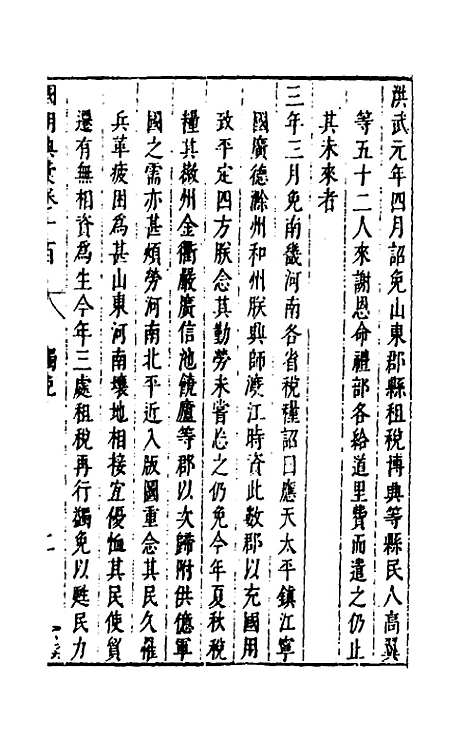 洪武元年四月詔免山東郡縣租稅博興等縣民人高翼
等五十二人來謝恩命禮部各給道里費而遣之仍止
其未來者
三年三月免南畿河南各省稅糧詔曰應天太平鎮江寧
國廣德滁州和州朕興師渡江時資此數郡以充國用
致平定四方朕念其勤勞未嘗忘之仍免今年夏秋稅
糧其徽州金衢嚴廣信池饒廬等郡以次歸附供億軍
國之需亦甚煩勞河南北平近入版圖重念其民久罹
兵革疲困為甚山東河南壤地相接宜優恤其民使貿
遷有無相資為生今年三處租稅再行蠲免以甦民力
國朝典彙卷一百 蠲免